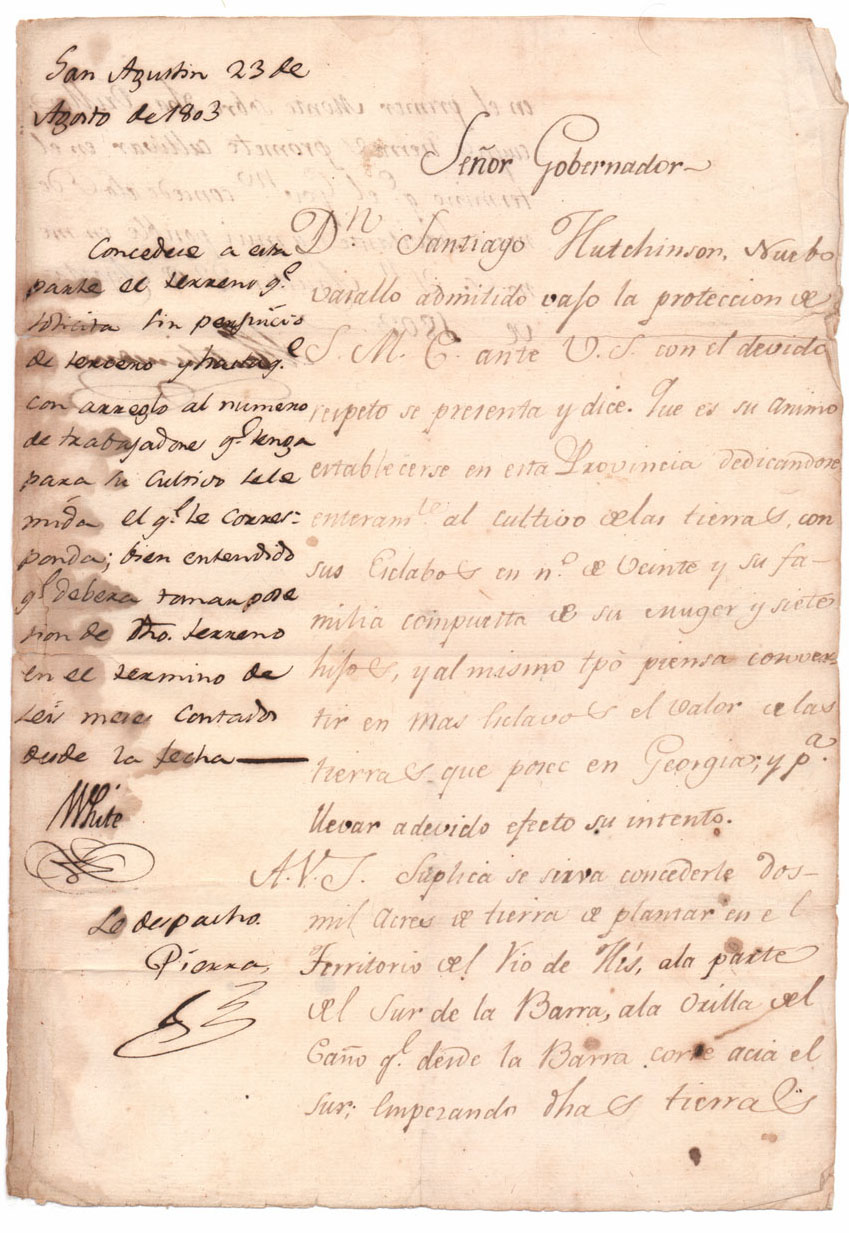 San Agustin 23 de
Agosto de 1803
Concedese a esta
parte el terreno q.e
solicita sin perjuicio
de tercero y hasta q.e
con arreglo al numero
de trabajadores q.e tenga
para su Cultivo se le
mida el q.e le corres-
ponda; bien entendido
q.e debera tomar pose
sion de dho. terreno
en el termino de
seis meses Contados
desde la fecha
White
Lo despacho.
Pierra
Señor Gobernador
D.n Santiago Hutchinson, Nuebo
vasallo admitido vaxo la proteccion de
S. M. C. ante V. S. con el devido
respeto se presenta y dice. Que es su animo
establecerse en esta Provincia dedicandose
enteram.te al cultivo de las tierras, con
sus Esclabos en n.o de Veinte y su fa-
milia compuesta de su Muger y siete
hijos, y al mismo tpô piensa conver-
tir en mas Esclavos el valor de las
tierras que posee en Georgia; y p.a
llevar a devido efecto su intento.
A. V. S. Suplica se sirva concederle dos-
mil Acres de tierra de plantar en el
Territorio del Rio de His, a la parte
del Sur de la Barra, a la Orilla del
Caño q.e desde la Barra corre acia el
sur; Empezando dhas tierras